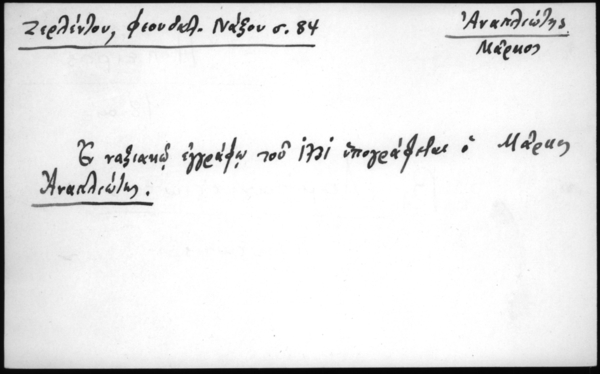 Ζερλέντου, Φεουδαλ. Νάξου σ. 84
Ἀναπλιώτης
Μᾶρκος
Ἐν ναξιακῷ ἐγγράφῳ τοῦ ὑπογράφεται ὁ Μᾶρκος
Ἀναπλιώτης.